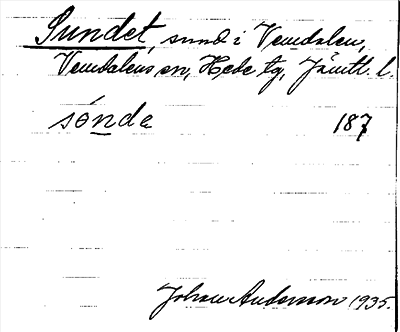 Sundet, sund i Vemdalen,
Vemdalens sn, Hede tg, Jämtl. l.
sònde 187
Johan Anderson 1935.